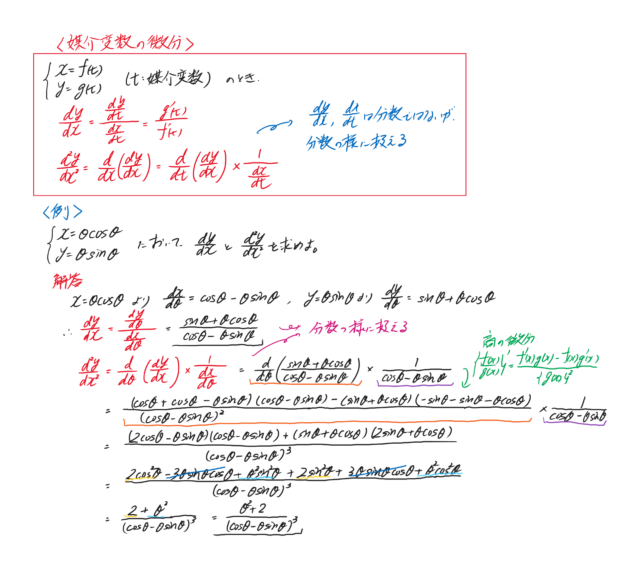 <媒介変数の微分>
{ x = f(t)
{ y = g(t) (t:媒介変数) のとき.
dy/dx = (dy/dt)/(dx/dt) = g'(t)/f'(t)
dy/dt, dx/dt は分数ではないが
分数の様に扱える
d²y/dx² = d/dx (dy/dx) = d/dt (dy/dx) × 1/(dx/dt)
<例>
{ x = θcosθ
{ y = θsinθ において dy/dx と d²y/dx² を求めよ。
解答
x = θcosθ より dx/dθ = cosθ - θsinθ , y = θsinθ より dy/dθ = sinθ + θcosθ
∴ dy/dx = (dy/dθ)/(dx/dθ) = (sinθ + θcosθ)/(cosθ - θsinθ)
分数の様に扱える
d²y/dx² = d/dθ (dy/dx) × 1/(dx/dθ) = d/dθ ((sinθ + θcosθ)/(cosθ - θsinθ)) × 1/(cosθ - θsinθ)
商の微分
{f(x)/g(x)}' = (f'(x)g(x) - f(x)g'(x))/{g(x)}²
= ((cosθ + cosθ - θsinθ)(cosθ - θsinθ) - (sinθ + θcosθ)(-sinθ - sinθ - θcosθ))/(cosθ - θsinθ)² × 1/(cosθ - θsinθ)
= ((2cosθ - θsinθ)(cosθ - θsinθ) + (sinθ + θcosθ)(2sinθ + θcosθ))/(cosθ - θsinθ)³
= (2cos²θ - 3θsinθcosθ + θ²sin²θ + 2sin²θ + 3θsinθcosθ + θ²cos²θ)/(cosθ - θsinθ)³
= (2 + θ²)/(cosθ - θsinθ)³ = (θ² + 2)/(cosθ - θsinθ)³